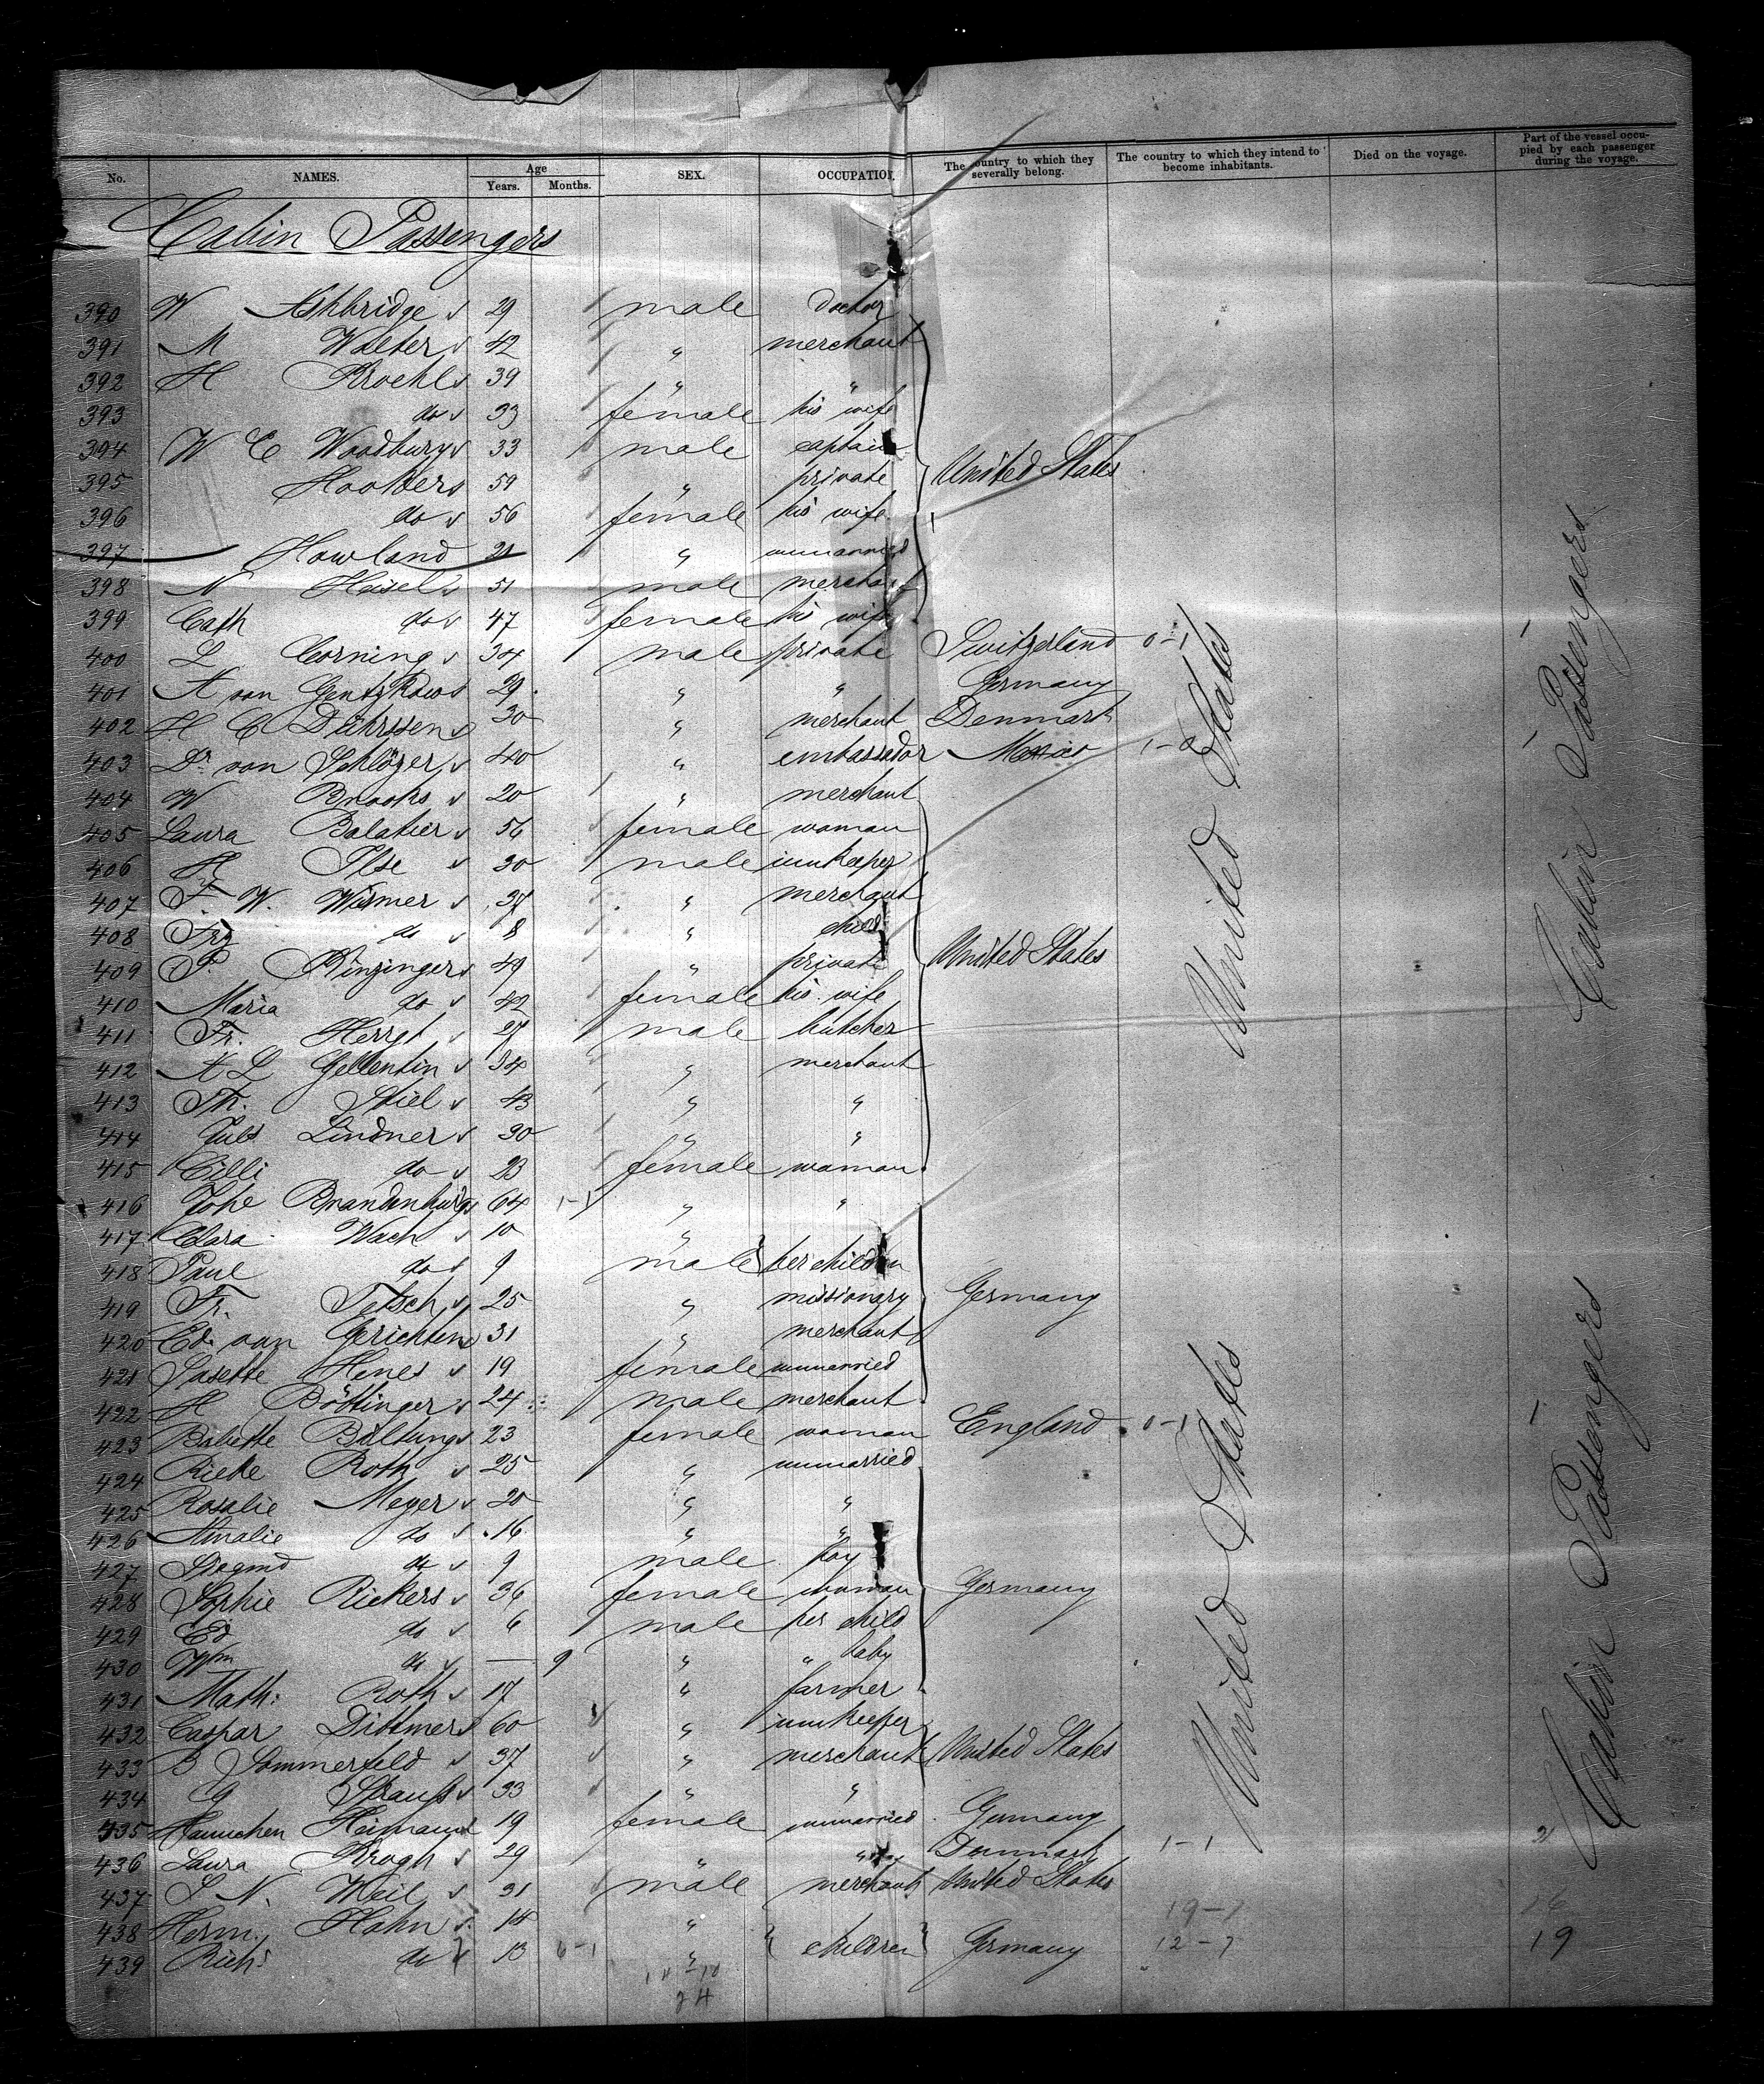 No. NAMES. Age Years. Months. SEX. OCCUPATION. The country to which they severally belong. The country to which they intend to become inhabitants. Died on the voyage. Part of the vessel occupied by each passenger during the voyage.
Cabin Passengers
390 W Ashbridge 29 male doctor
391 M Walter 42 " merchant
392 H Kroehl 39 " "
393 do 33 female his wife
394 W C Woodbury 33 male captain
395 59 " private United States
396 do 56 female his wife
397 Howland 21 " unmarried
398 N Heisel 51 male merchant
399 Cath do 47 female his wife
400 L Corning 34 male private Switzerland 0-1
401 A von Gentzkow 29 " " Germany
402 H C Dührssen 30 " merchant Denmark
403 Dr von Schlözer 40 " embassador Mexico
404 W Brooks 20 " merchant
405 Laura Balatier 56 female woman
406 Ilse 30 male innkeeper
407 F. W. Wismer 37 " merchant
408 Fritz do 8 " child
409 P Kinzinger 49 " private United States
410 Maria do 42 female his wife
411 Fr. Herrgt 27 male butcher
412 A L Gellentin 34 " merchant
413 Th. Stiel 43 " "
414 Juls Lindner 30 " "
415 Cilli do 23 female woman
416 Johe Brandenburg 64 1-1 " "
417 Clara Wach 10 "
418 Paul do 9 male her children
419 Fr. Tetsch 25 " missionary Germany
420 Ed. van Gerichten 31 " merchant
421 Henes 19 female unmarried
422 H Böttinger 24 male merchant
423 Babette Biltung 23 female woman England 0-1
424 Rieke Roth 25 " unmarried
425 Rosalie Meyer 20 " "
426 Amalie do 16 " "
427 Siegmd do 9 male boy
428 Sophie Rickers 36 female woman Germany
429 Ed do 6 male her child
430 Wm do — 9 " " baby
431 Math. Roth 17 " farmer
432 Caspar Dittmer 60 " innkeeper
433 B Sommerfeld 37 " merchant United States
434 G Strauss 33 " "
435 Hannchen Heimann 19 female unmarried Germany
436 Laura Krogh 29 " " Denmark 1-1
437 S N. Weil 31 male merchant United States
438 Herm. Hahn 14 "
439 Richd do 13 6-1 " children Germany 12-7 19
United States
United States
Cabin Passengers
Cabin Passengers
19-7
16
24